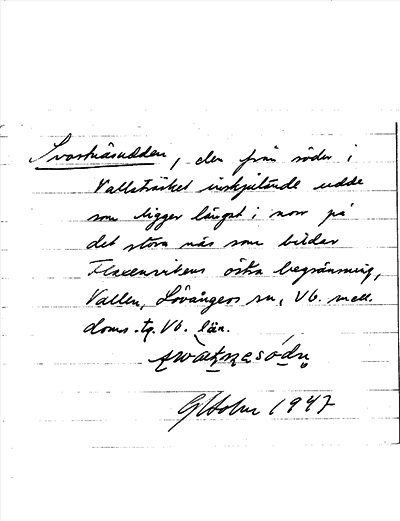 Svartnäsudden, den från söder i
Vallsträsket inskjutande udde
som ligger längst i norr på
det stora näs som bildar
östra begränsning,
Vallen, Lövångers sn, Vb. mell.
doms.tg. Vb. län.
1947